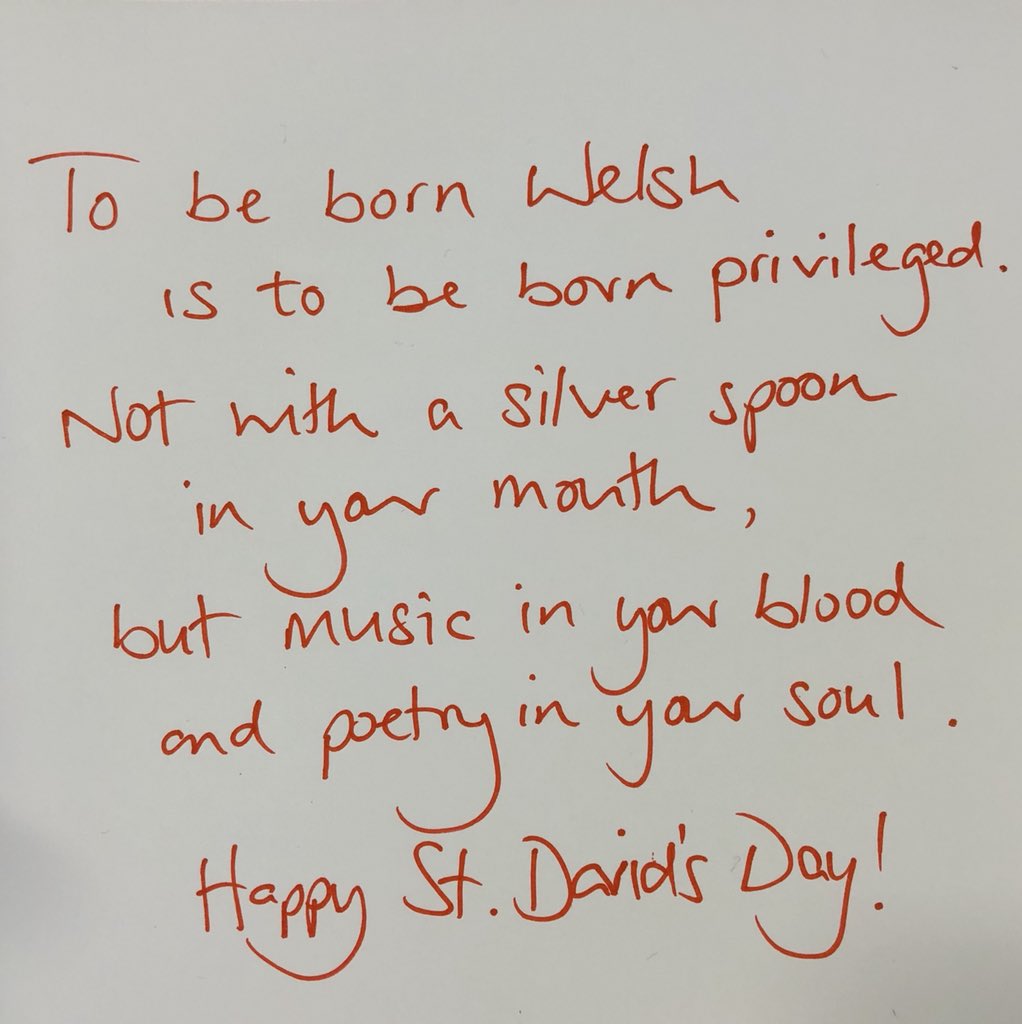 To be born Welsh
is to be born privileged.
Not with a silver spoon
in your mouth,
but music in your blood
and poetry in your soul.
Happy St. David's Day!